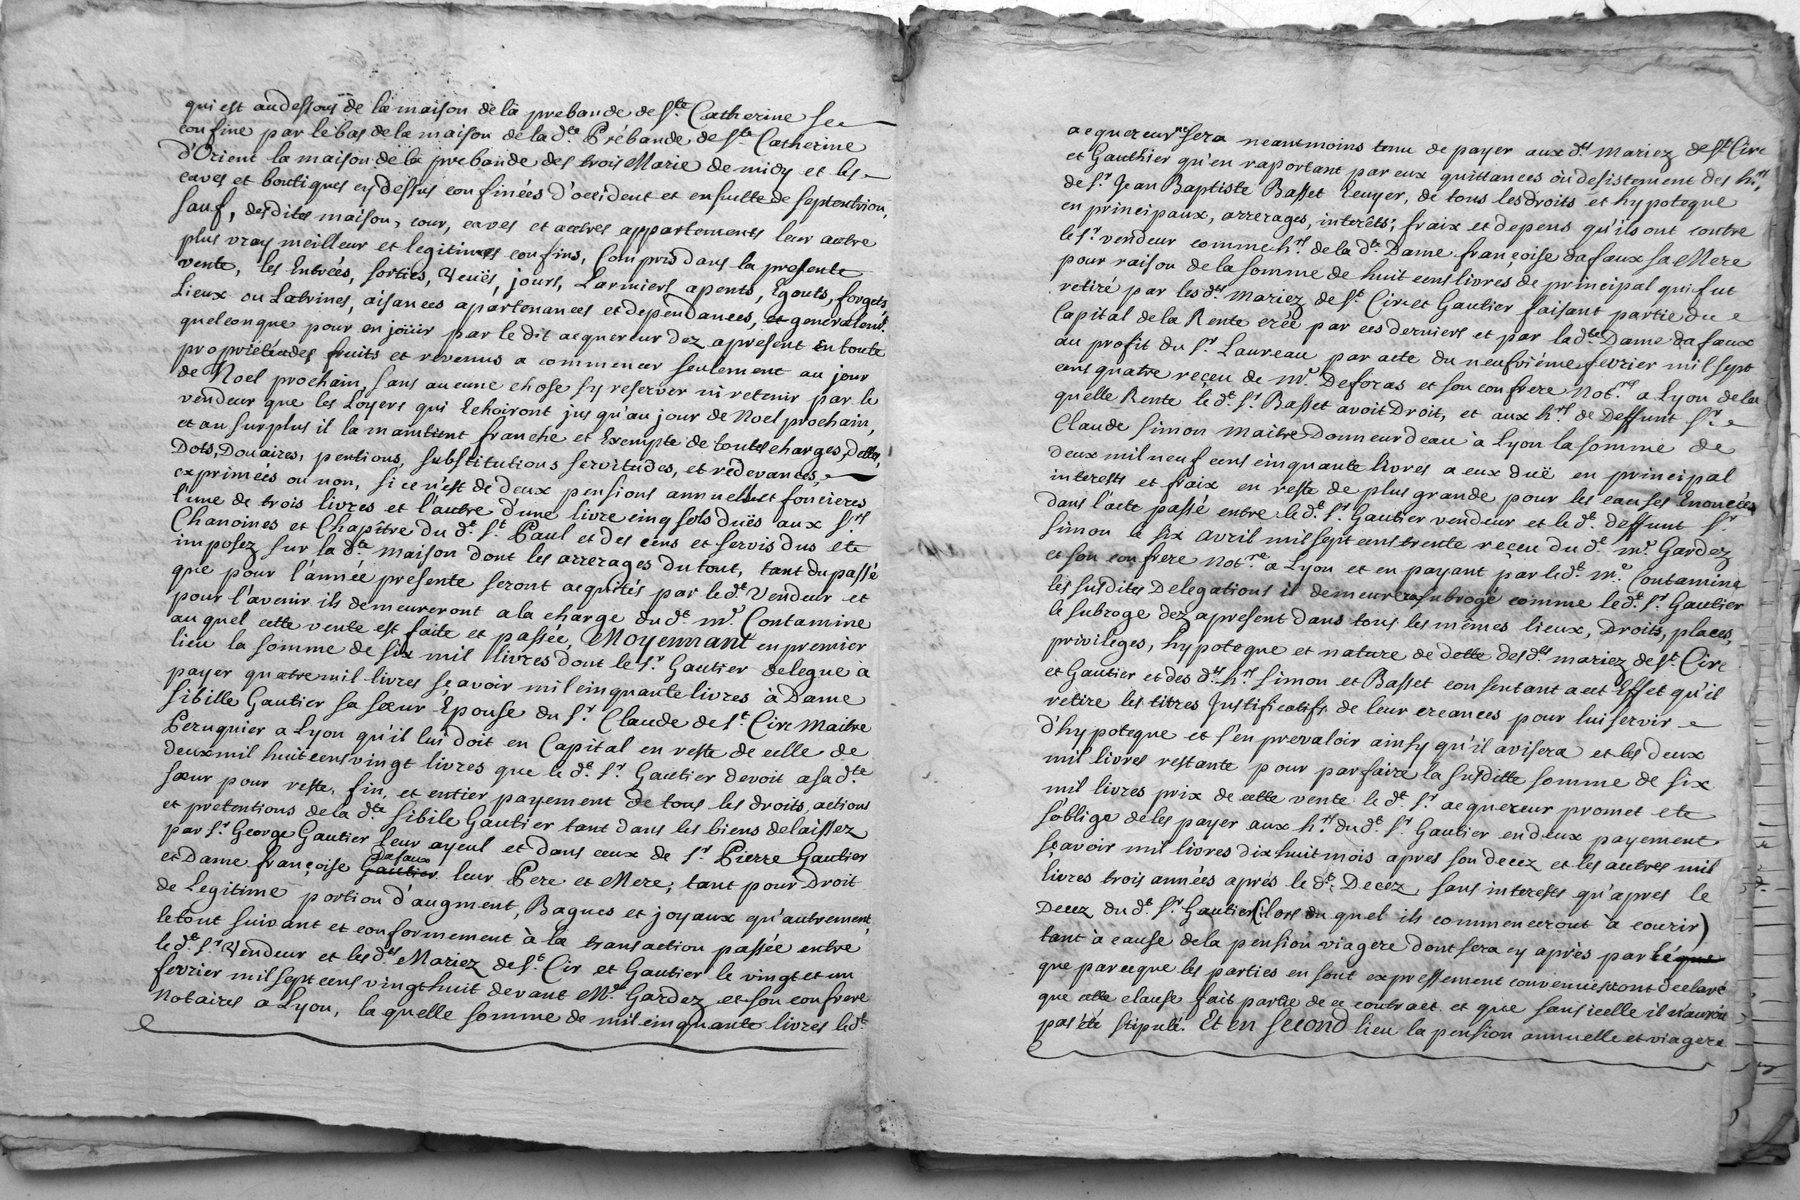 qui est audessous de la maison de la prebande de Ste. Catherine se
confine par le bas de la maison de la dte. Prébande de Ste. Catherine
d'Orient la maison de la prebande des trois Marie de midy et les
caves et boutiques cy dessus confinées d'occident et ensuitte de septentrion,
sauf, desdites maison, cour, caves et autres appartements leur autre
plus vray meilleur et legitimes confins, Compris dans la presente
vente, les Entrées, sorties, Veuës, jours, Larmiers apents, Egouts, forgets,
Lieux ou Latrines, aisances apartenances et dependances, et generalemt.
quelconque pour en joüir par le dit acquereur dez apresent en toute
propriétée des fruits et revenus a commencer seulement au jour
de Noel prochain, sans aucune chose sy reserver ni retenir par le
vendeur que les Loyers qui Echoiront jusqu'au jour de Noel prochain,
et au surplus il la maintient franche et Exempte de toutes charges, dettes,
Dots, Doüaires, pentions, substitutions servitudes, et redevances,
exprimées ou non, si ce n'est de deux pensions annuelles et foncieres
l'une de trois livres et l'autre d'une livre cinq sols duës aux Srs
Chanoines et Chapitre du dt. St. Paul et des cens et servis dus etc
imposez sur la dte. maison dont les arrerages du tout, tant du passé
que pour l'année presente seront acquités par le dt. Vendeur et
pour l'avenir ils demeureront a la charge du dt. mr. Contamine
auquel cette vente est faite et passée, Moyennant en premier
lieu la somme de six mil livres dont le Sr. Gautier delegue à
payer quatre mil livres sçavoir mil cinquante livres à Dame
Sibille Gautier sa sœur Epouse du Sr. Claude de St. Circ Maitre
Peruquier a Lyon qu'il lui doit en Capital en reste de celle de
deux mil huit cens vingt livres que le dt. Sr. Gautier devoit a sa dte
sœur pour reste, fin, et entier payement de tous les droits, actions
et pretentions de la dte. Sibile Gautier tant dans les biens delaissez
par Sr. George Gautier leur ayeul et dans ceux de Sr. Pierre Gautier
et Dame françoise Gautier Dafaux leur Pere et Mere, tant pour Droit
de Legitime portion d'augment, Bagues et joyaux qu'autrement,
le tout suivant et conformement à la transaction passée entre
le dt. Sr. Vendeur et les drs Mariez de St. Cir et Gautier le vingt et un
fevrier mil sept cens vingt huit devant Mr. Gardez et son confrere
Notaires a Lyon, la quelle somme de mil cinquante livres ledt.
acquereur ne sera neantmoins tenu de payer aux drs mariez de St. Circ
et Gauthier qu'en raportant par eux quittances ou desistement des hrs,
de Sr. Jean Baptiste Basset Ecuyer, de tous les droits et hypoteque
en principaux, arrerages, interêts, fraix et depens qu'ils ont contre
le Sr. vendeur comme hr. de la dte. Dame françoise dafaux sa Mere
pour raison de la somme de huit cens livres de principal qui fut
retiré par les drs. Mariez de St. Circ et Gautier faisant partie du
Capital de la Rente creé par ces derniers et par la dte Dame dafaux
au profit du Sr. Laureau par acte du neufvième fevrier mil sept
cens quatre reçeu de Mr. Deforas et son confrere Notres a Lyon de la
quelle Rente le dt. Sr. Basset avoit Droit, et aux hrs. de Deffunt Sr.
Claude Simon Maitre Donneur deau à Lyon la somme de
deux mil neuf cens cinquante livres a eux duë en principal
interests et fraix en reste de plus grande pour les causes Enoncées
dans l'acte passé entre le dt. Sr. Gautier vendeur et le dt. deffunt Sr.
Simon le six avril mil sept cens trente reçeu du dt. mr. Gardez
et son confrere Notre. a Lyon et en payant par le dt. Mr. Contamine
les susdites Delegations il demeurera subrogé comme le dt. Sr. Gautier
le subroge dez apresent dans tous les mêmes lieux, Droits, places,
privileges, hypoteque et nature de dette des drs mariez de St. Circ
et Gautier et des dts. hrs Simon et Basset consentant a cet Effet qu'il
retire les titres Justificatifs de leur creances pour lui servir
d'hypoteque et s'en prevaloir ainsy qu'il avisera et les deux
mil livres restante pour parfaire la susditte somme de six
mil livres prix de cette vente le dt Sr acquereur promet etc
s'oblige de les payer aux hrs. du dt. Sr. Gautier en deux payement
sçavoir mil livres dix huit mois apres son decez et les autres mil
livres trois années aprés le dt. Decez sans interests qu'apres le
Decez du dt. Sr. Gautier (lors du quel ils commenceront à courir)
tant à cause de la pension viagere dont sera cy après parlé que
que parceque les parties en sont expressement convenues et ont declaré
que cette clause fait partie de ce contract et que sans icelle il n'auroit
pas été stipulé. Et en second lieu la pension annuelle et viagere